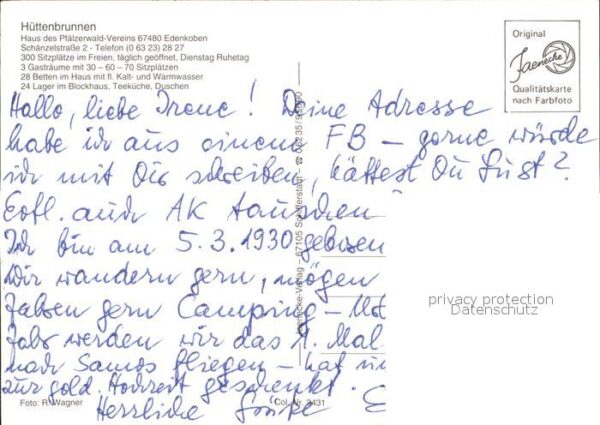 Hüttenbrunnen
Haus des Pfälzerwald-Vereins 67480 Edenkoben
Schänzelstraße 2 - Telefon (0 63 23) 28 27
300 Sitzplätze im Freien, täglich geöffnet, Dienstag Ruhetag
3 Gasträume mit 30 – 60 – 70 Sitzplätzen
28 Betten im Haus mit fl. Kalt- und Warmwasser
24 Lager im Blockhaus, Teeküche, Duschen
Original
Jaenecke
Qualitätskarte
nach Farbfoto
Hallo, liebe Irene! Deine Adresse
habe ich aus einem FB – gerne würde
ich mit Dir schreiben, hättest Du Lust?
Evtl. auch AK tauschen
Ich bin am 5.3.1930 geboren
Wir wandern gern, mögen
fahren gern Camping – Mot
Jahr werden wir das 1. Mal
nach Samos fliegen – hat
zur gold. Hochzeit geschenkt.
Herzliche Grüße
Jaenecke-Verlag – 67105 Schifferstadt –
privacy protection
Datenschutz
Foto: R. Wagner
Col. Nr. 3431